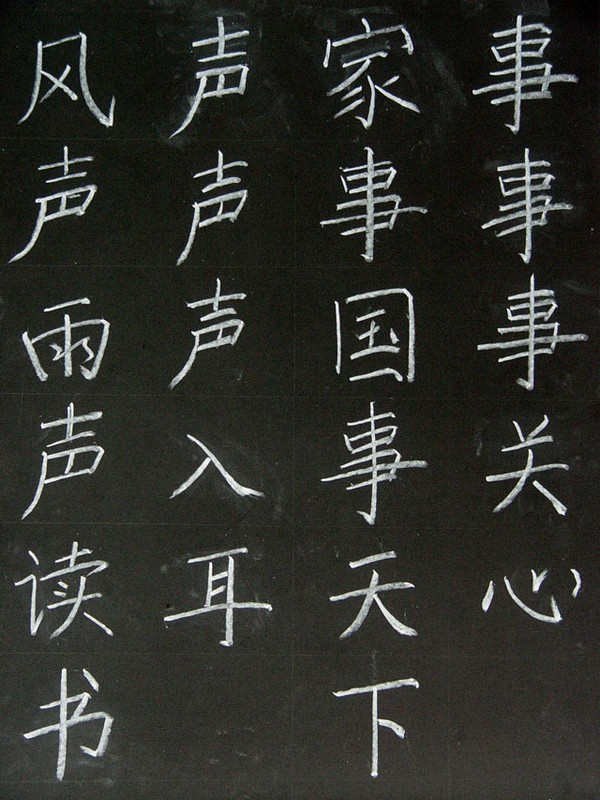 风声雨声读书
声声声入耳
家事国事天下
事事事关心